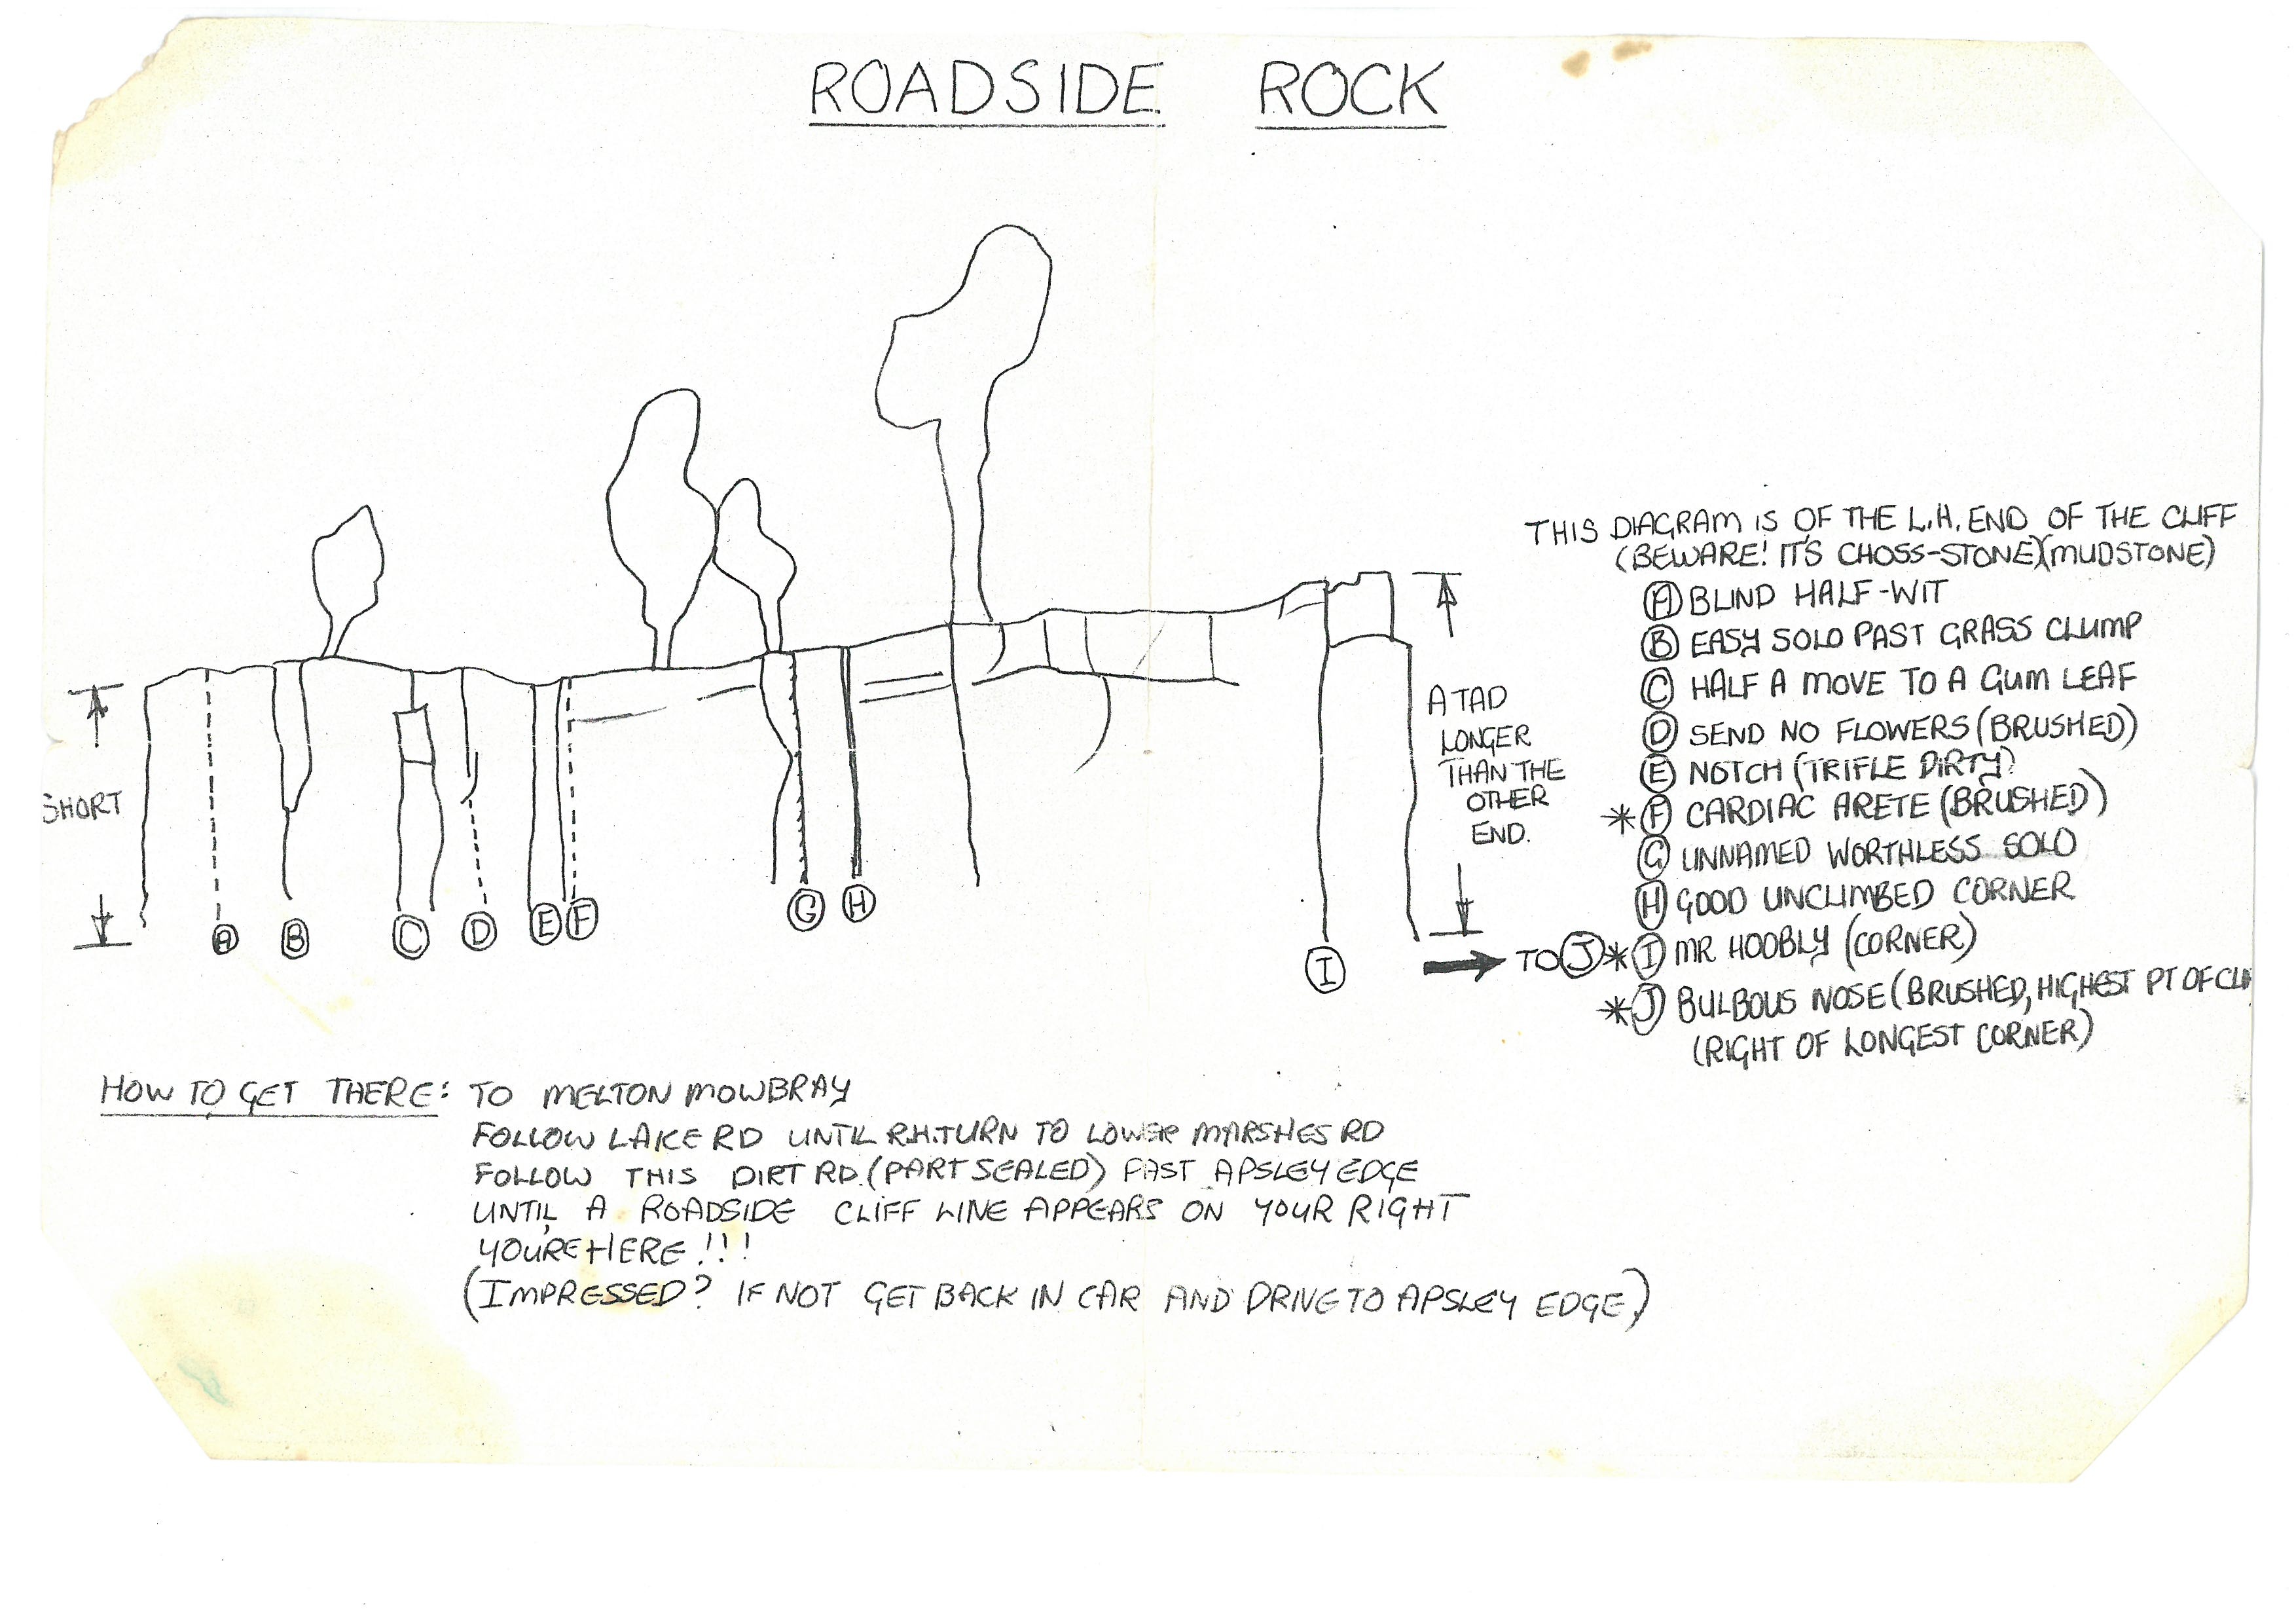 ROADSIDE ROCK
THIS DIAGRAM IS OF THE L.H. END OF THE CLIFF
(BEWARE! IT'S CHOSS-STONE)(MUDSTONE)
Ⓐ BLIND HALF-WIT
Ⓑ EASY SOLO PAST GRASS CLUMP
Ⓒ HALF A MOVE TO A GUM LEAF
Ⓓ SEND NO FLOWERS (BRUSHED)
Ⓔ NOTCH (TRIFLE DIRTY)
* Ⓕ CARDIAC ARETE (BRUSHED)
Ⓖ UNNAMED WORTHLESS SOLO
Ⓗ GOOD UNCLIMBED CORNER
* Ⓘ MR HOOBLY (CORNER)
* Ⓙ BULBOUS NOSE (BRUSHED, HIGHEST PT OF CLI
(RIGHT OF LONGEST CORNER)
SHORT
A TAD
LONGER
THAN THE
OTHER
END.
Ⓐ Ⓑ Ⓒ Ⓓ Ⓔ Ⓕ Ⓖ Ⓗ Ⓘ
TO Ⓙ
HOW TO GET THERE: TO MELTON MOWBRAY
FOLLOW LAKE RD UNTIL R.H. TURN TO LOWER MARSHES RD
FOLLOW THIS DIRT RD. (PART SEALED) PAST APSLEY EDGE
UNTIL A ROADSIDE CLIFF LINE APPEARS ON YOUR RIGHT
YOURE HERE!!!
(IMPRESSED? IF NOT GET BACK IN CAR AND DRIVE TO APSLEY EDGE)